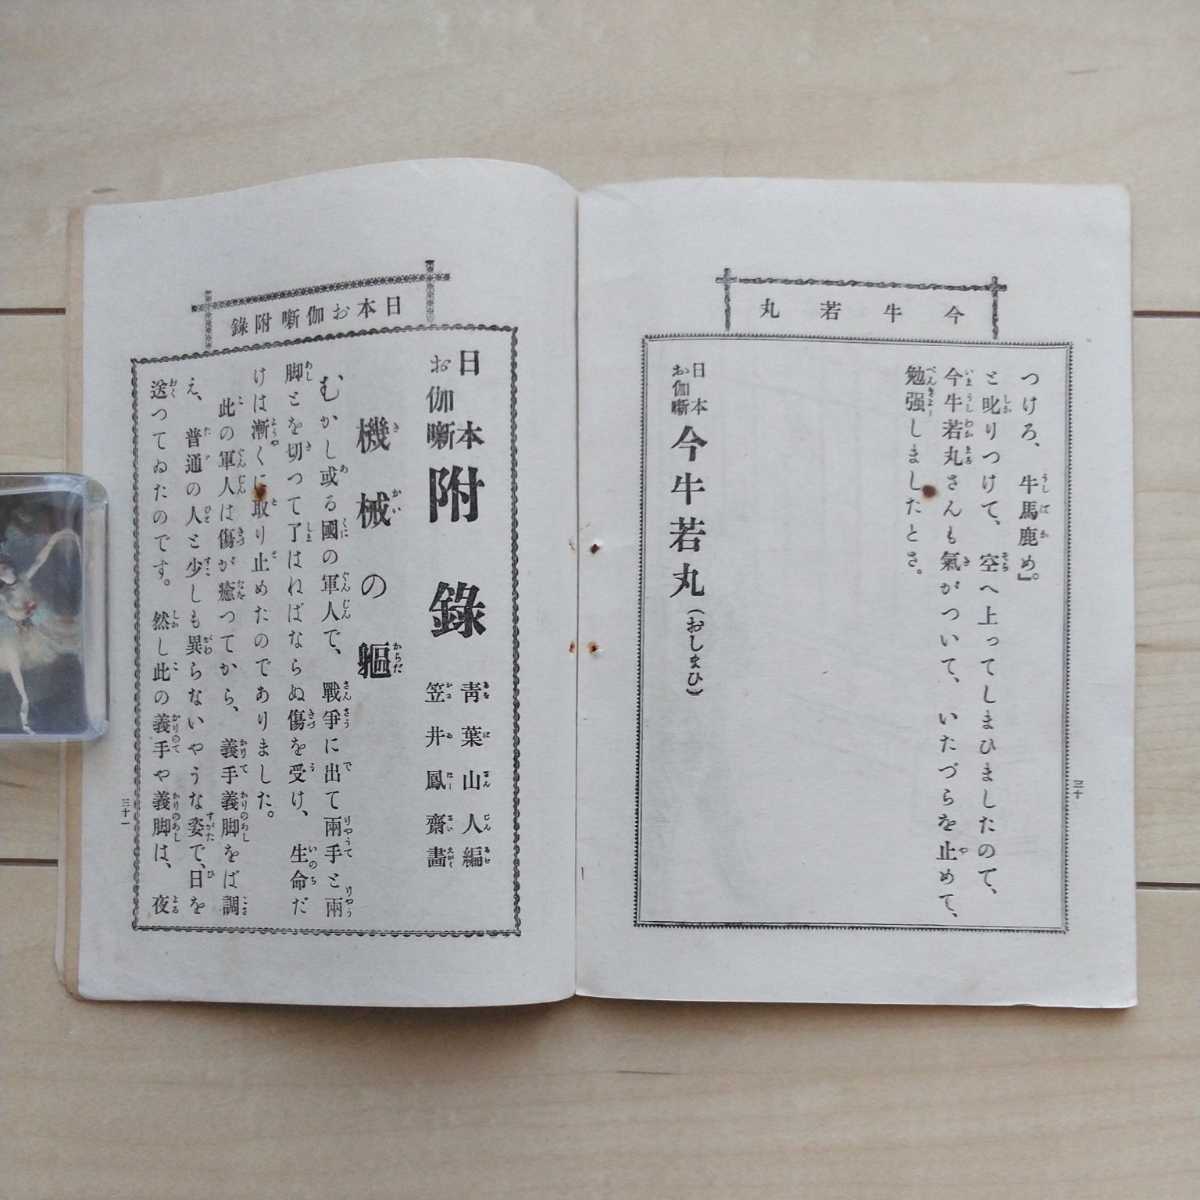 今牛若丸
つけろ、牛馬鹿め』。
と叱りつけて、空へ上ってしまひましたので、
今牛若丸さんも氣がついて、いたづらを止めて、
勉强しましたとさ。
日本お伽噺 今牛若丸(おしまひ)
三十
日本お伽噺附錄
日本お伽噺 附錄
靑葉山人編
笠井鳳齋畵
機械の軀
むかし或る國の軍人で、戰爭に出て兩手と兩
脚とを切つて了はねばならぬ傷を受け、生命だ
けは漸くに取り止めたのでありました。
此の軍人は傷が癒つてから、義手義脚をば調
え、普通の人と少しも異らないやうな姿で、日を
送つてゐたのです。然し此の義手や義脚は、夜
三十一